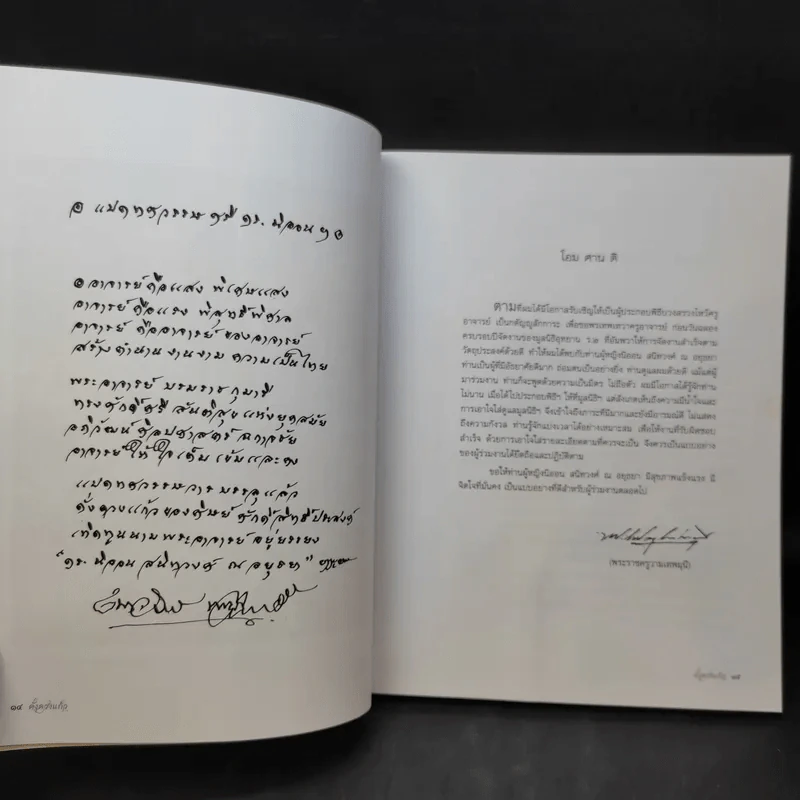 ๏ แปดทศวรรษ ศรี ดร. นิออน ๆ ๏
๏ อาจารย์คือแสง พิเศษแสง
อาจารย์คือแรง พิสุทธิ์พิศาล
อาจารย์ คืออาจารย์ ของอาจารย์
สร้างตำนาน งานงาม ความเป็นไทย
พระอาจารย์ บรมราชกุมารี
ทรงศักดิ์ศรี สันติสุข แห่งยุคสมัย
อภิวัฒน์ ศิลปศาสตร์
อาจารย์ให้ ใจเต็ม เข้มและตรง
แปดทศวรรษวาร บรรลุแล้ว
ดั่งดวงแก้ว ของศิษย์ ศักดิ์สิทธิ์ประสงค์
เทิดทูนนามพระอาจารย์ อยู่ยรรยง
"ดร. นิออน สนิทวงศ์ ณ อยุธยา"
๑๔
โอม ศาน ติ
ตามที่ผมได้มีโอกาสรับเชิญให้เป็นผู้ประกอบพิธีบวงสรวงไหว้ครู
อาจารย์ เป็นกตัญญูสักการะ เพื่อขอพรเทพเทวาครูอาจารย์ ก่อนวันฉลอง
ครบรอบปีจัดงานของมูลนิธิอุทยาน ร.๒ ที่อัมพวาให้การจัดงานสำเร็จตาม
วัตถุประสงค์ด้วยดี ทำให้ผมได้พบกับท่านผู้หญิงนิออน สนิทวงศ์ ณ อยุธยา
ท่านเป็นผู้ที่มีอัธยาศัยดีมาก ถ่อมตนเป็นอย่างยิ่ง ท่านดูแลผมด้วยดี แม้แต่ผู้
มาร่วมงาน ท่านก็จะพูดด้วยความเป็นมิตร ไม่ถือตัว ผมมีโอกาสได้รู้จักท่าน
ไม่นาน เมื่อได้ไปประกอบพิธีฯ ให้ที่มูลนิธิฯ แต่สังเกตเห็นถึงความมีน้ำใจและ
การเอาใจใส่ดูแลมูลนิธิฯ จึงเข้าใจถึงภาระที่มีมากและยังมีอารมณ์ดี ไม่แสดง
ถึงความกังวล ท่านรู้จักแบ่งเวลาได้อย่างเหมาะสม เพื่อให้งานที่รับผิดชอบ
สำเร็จ ด้วยการเอาใจใส่รายละเอียดตามที่ควรจะเป็น จึงควรเป็นแบบอย่าง
ของผู้ร่วมงานได้ยึดถือและปฏิบัติตาม
ขอให้ท่านผู้หญิงนิออน สนิทวงศ์ ณ อยุธยา มีสุขภาพแข็งแรง มี
จิตใจที่มั่นคง เป็นแบบอย่างที่ดีสำหรับผู้ร่วมงานตลอดไป
(พระราชครูวามเทพมุนี)
๑๕